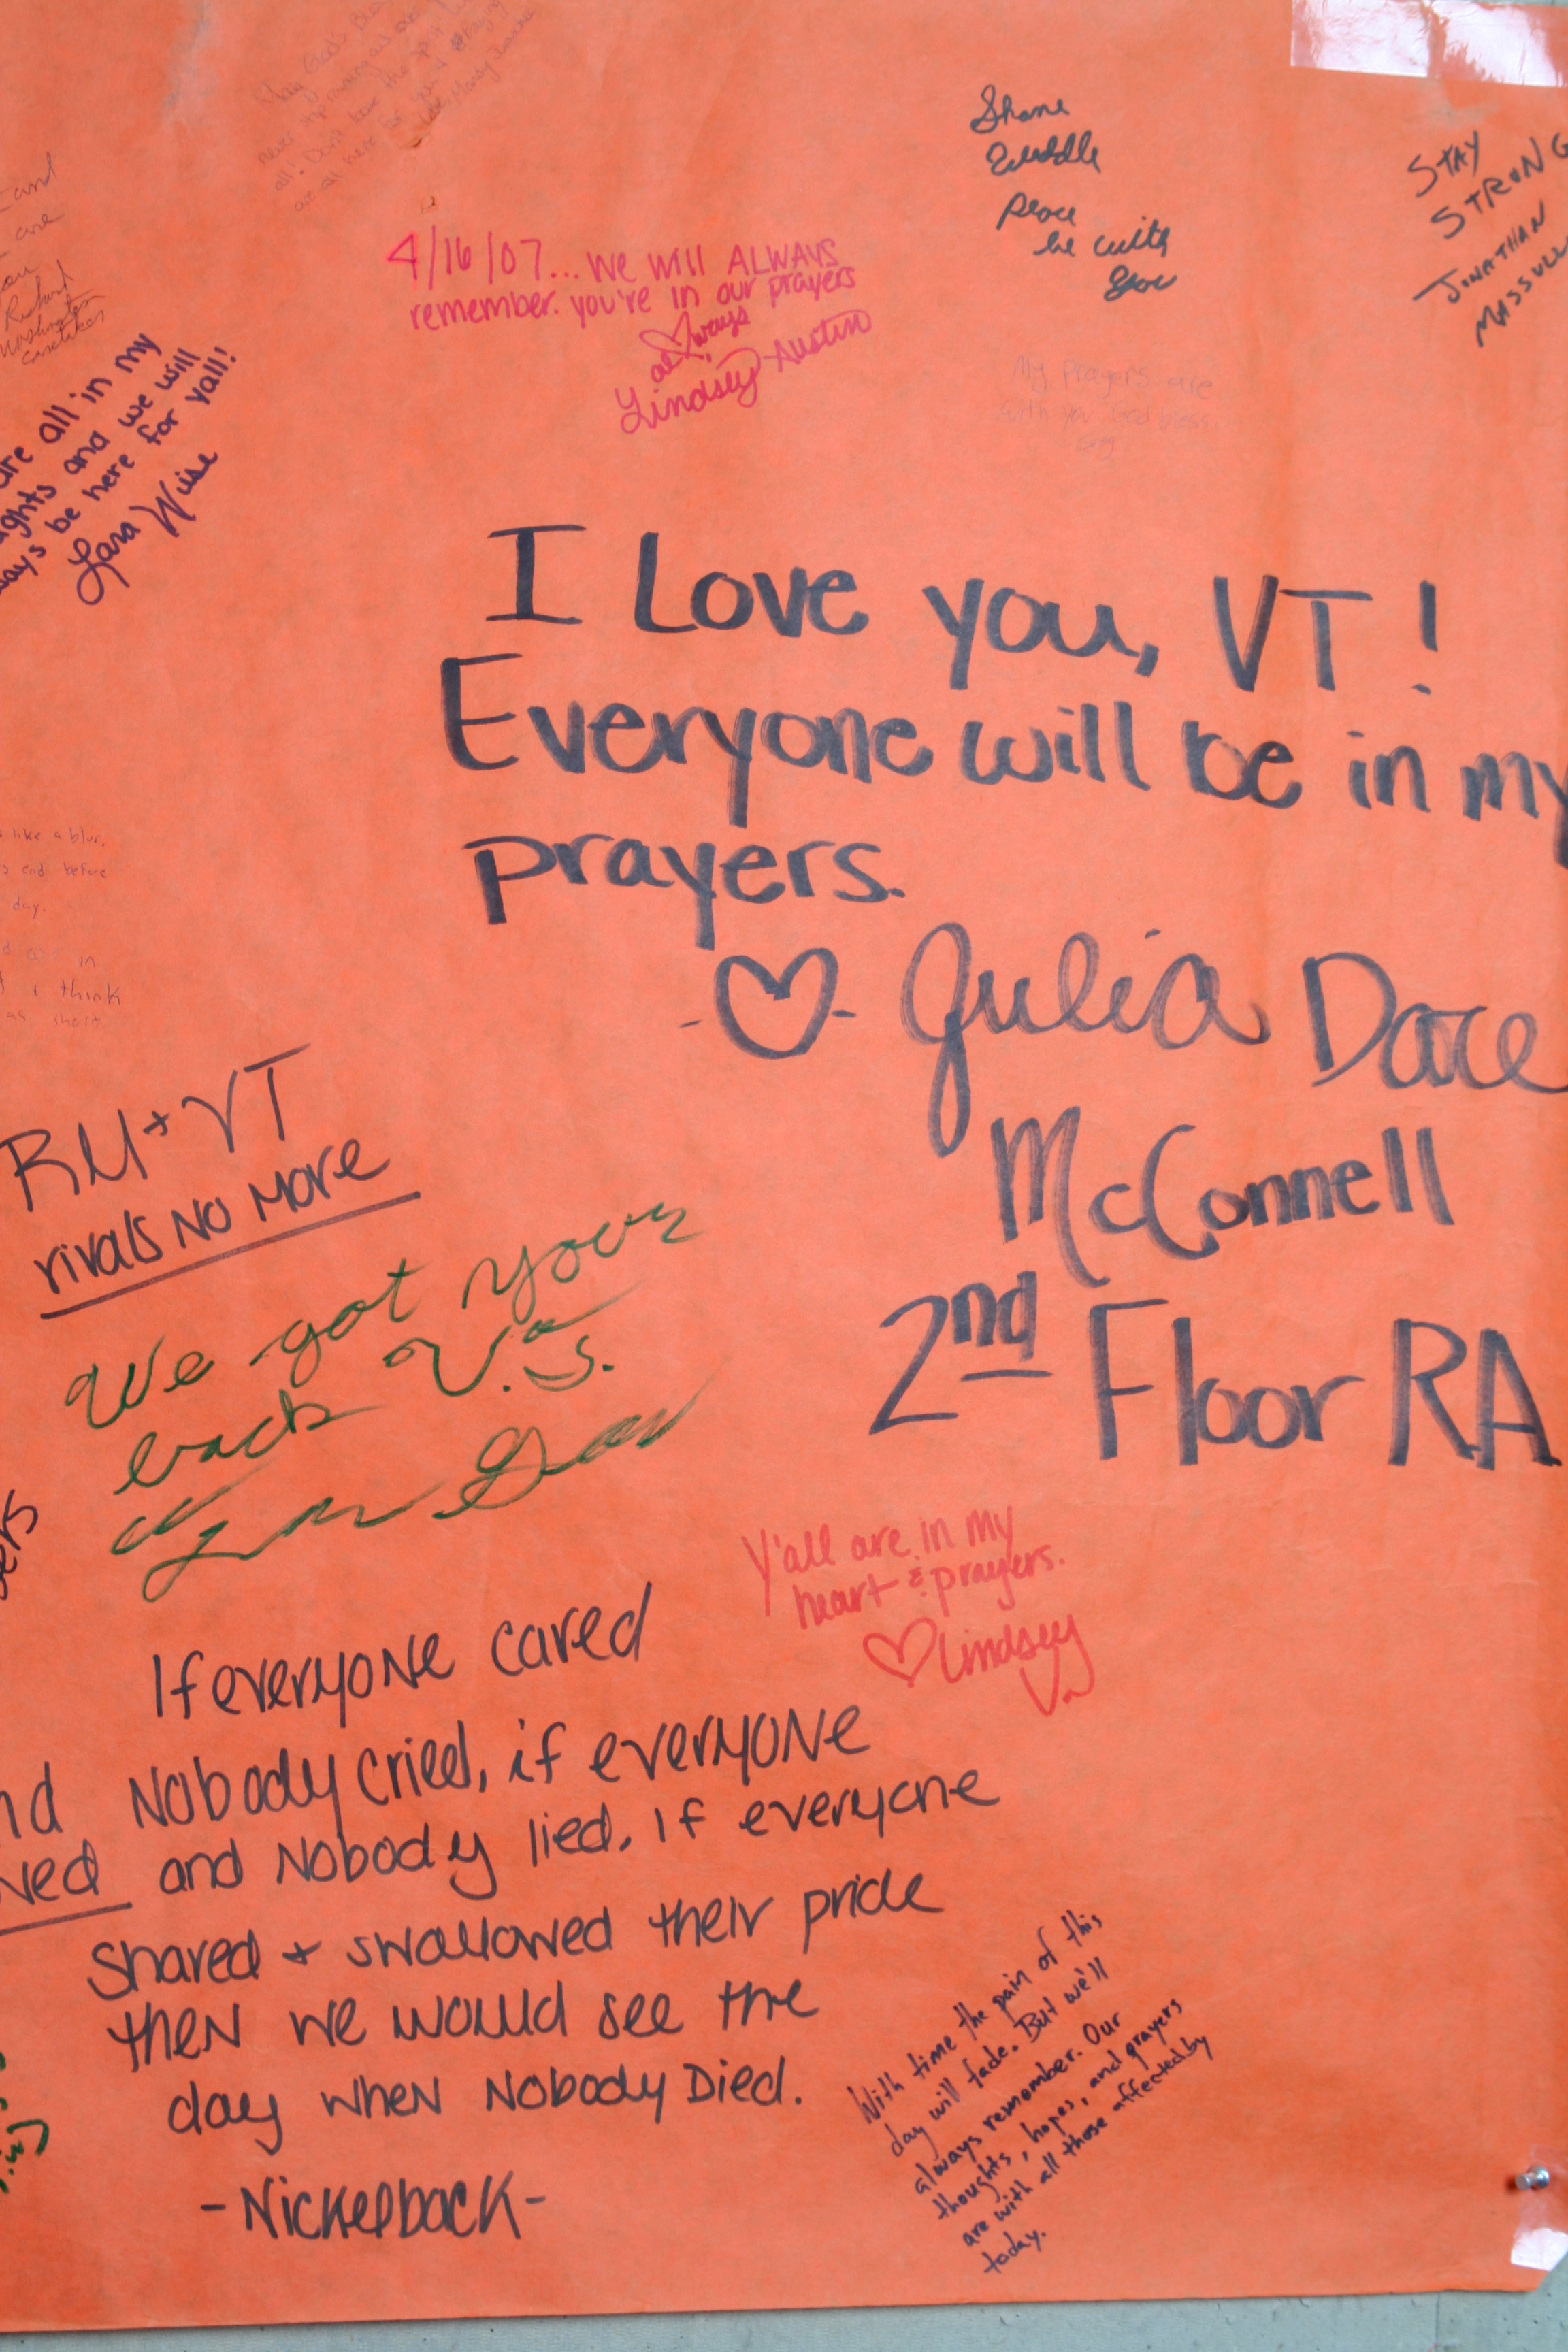 May God's Bless
never stop
all! Don't lose the spirit
are all here for you
Shane
Peace
be with
you
STAY
STRONG
JONATHAN
and
are
Richard
Washington
caretaker
4/16/07... We will ALWAYS
remember. you're in our prayers
always
Lindsey Austin
My prayers are
with you. God bless.
Greg
are all in my
and we will
be here for yall!
Lara Wise
I Love you, VT!
Everyone will be in my
prayers.
-♡- Julia Dace
McConnell
2nd Floor RA
like a blur.
end before
day.
in
I think
as short
RU + VT
rivals No More
We got your
back
Y'all are in my
heart & prayers.
♡ Lindsey
If everyone cared
Nobody cried, if everyone
and Nobody lied. If everyone
shared + swallowed their pride
then we would see the
day when Nobody Died.
-Nickelback-
With time the pain of this
day will fade. But we'll
always remember. Our
thoughts, hopes, and prayers
are with all those affected by
today.